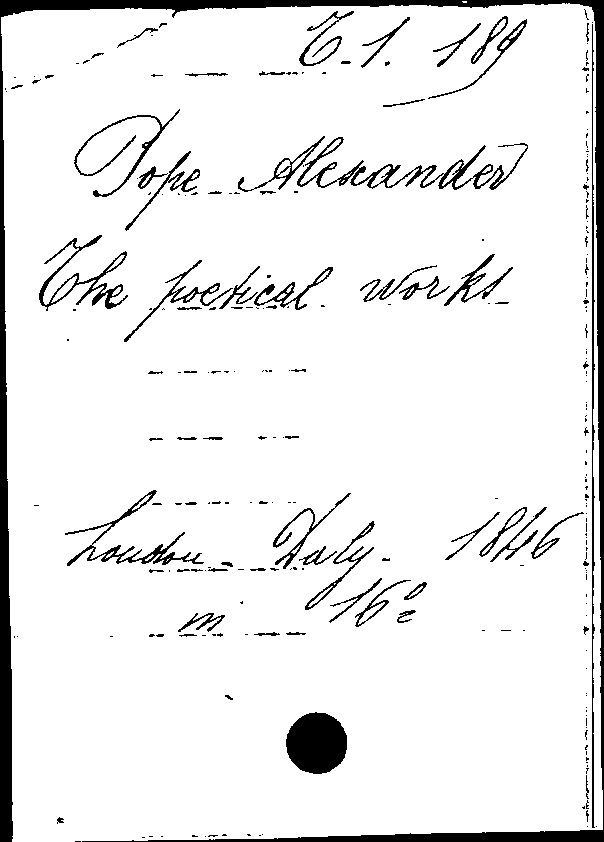 6.1.189
Pope Alexander
The poetical works
London - Daly - 1846
in 16º